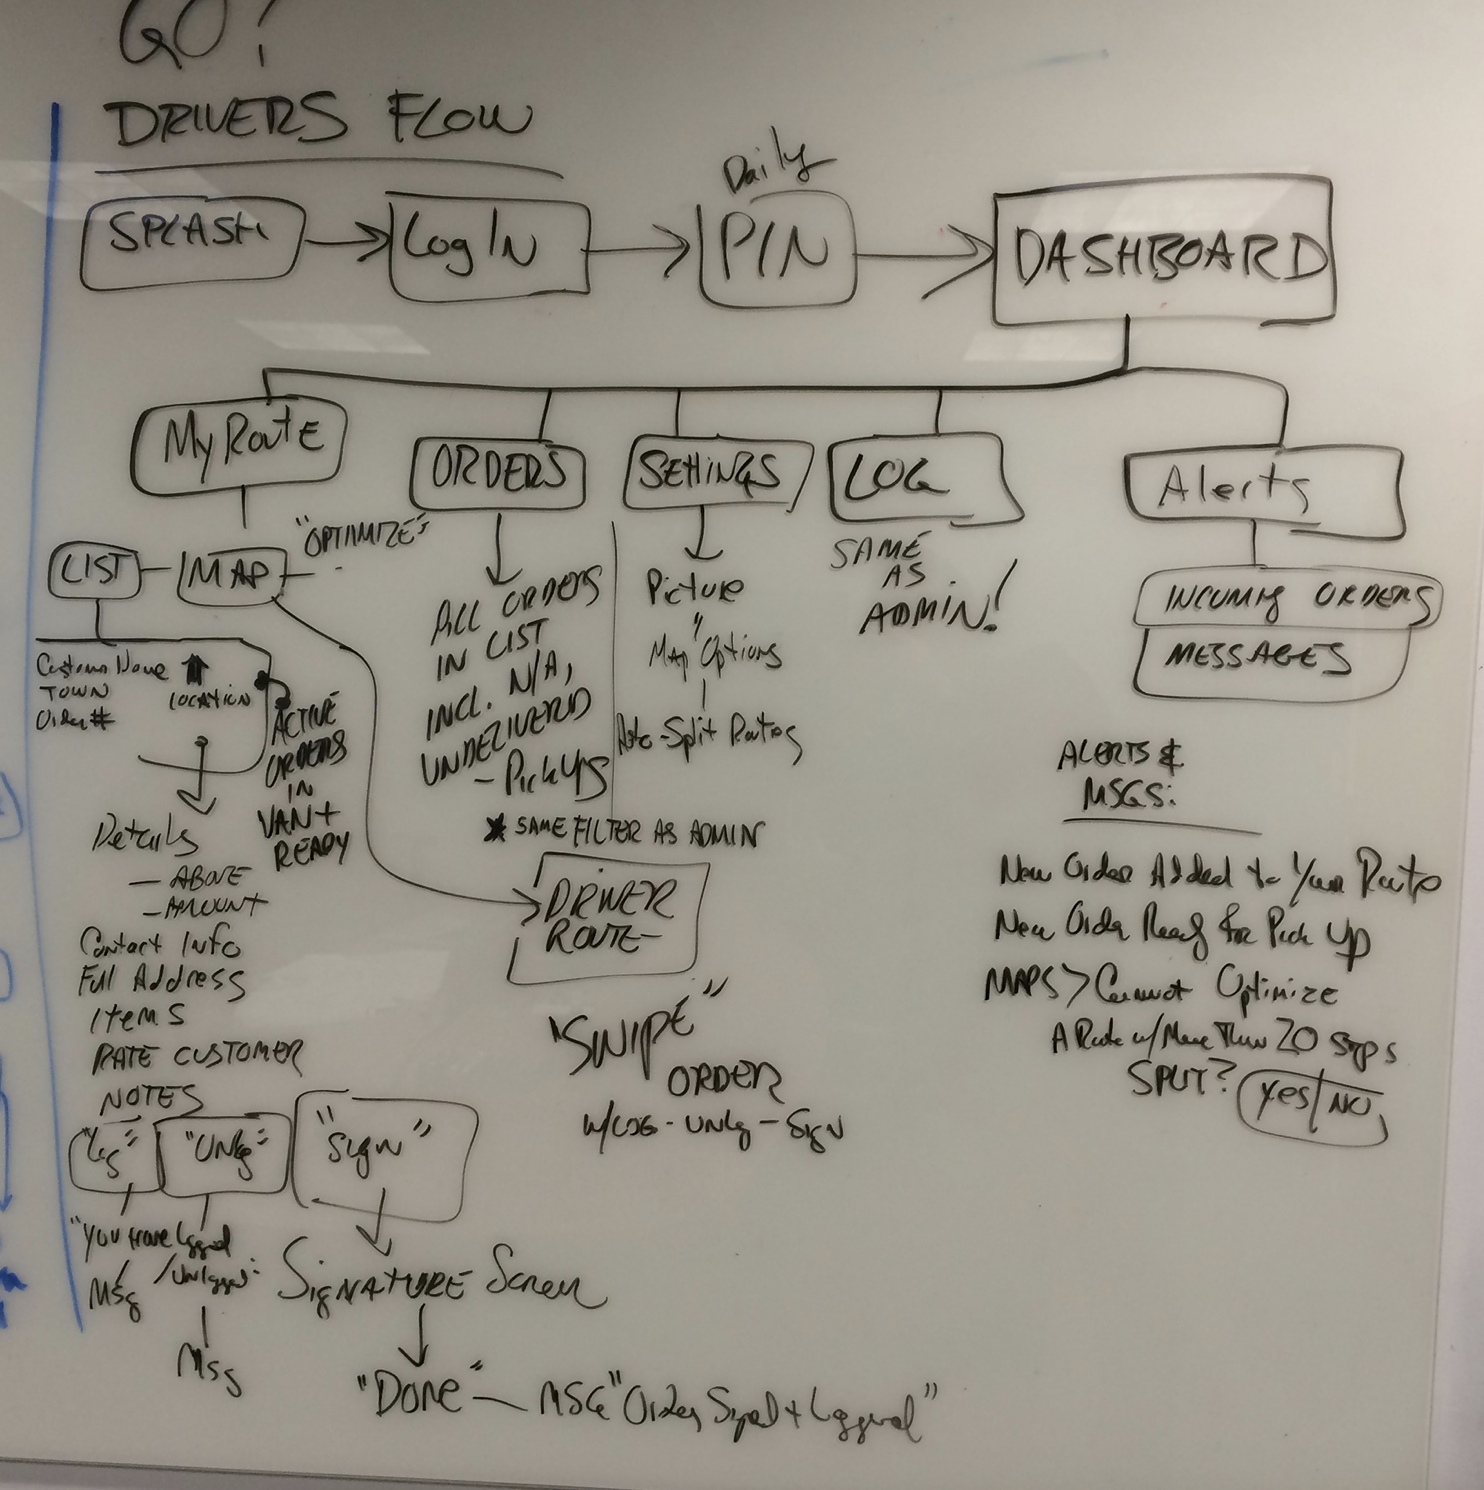 GO?
DRIVERS FLOW
SPLASH
Log IN
Daily
PIN
DASHBOARD
My Route
ORDERS
SETTINGS
LOG
Alerts
LIST
MAP
"OPTIMIZE"
Customer Name
TOWN
Order #
LOCATION
ACTIVE
ORDERS
IN
VAN +
READY
Details
— ABOVE
— AMOUNT
Contact Info
Full Address
Items
RATE CUSTOMER
NOTES
"Lg"
"UNlg"
"Sign"
"You Have Logged
/Unlogged"
Msg
Msg
SIGNATURE Screen
"DONE" — MSG "Order Signed + Logged"
ALL ORDERS
IN LIST
INCL. N/A,
UNDELIVERED
- PICKUPS
* SAME FILTER AS ADMIN
DRIVER
ROUTE
"SWIPE"
ORDER
W/LOG - UNlg - Sign
Picture
Map Options
Auto-Split Routes
SAME
AS
ADMIN!
INCOMING ORDERS
MESSAGES
ALERTS &
MSGS:
New Order Added to Your Route
New Order Ready for Pick Up
MAPS > Cannot Optimize
A Route w/ More Than 20 Stops
SPLIT? Yes/No